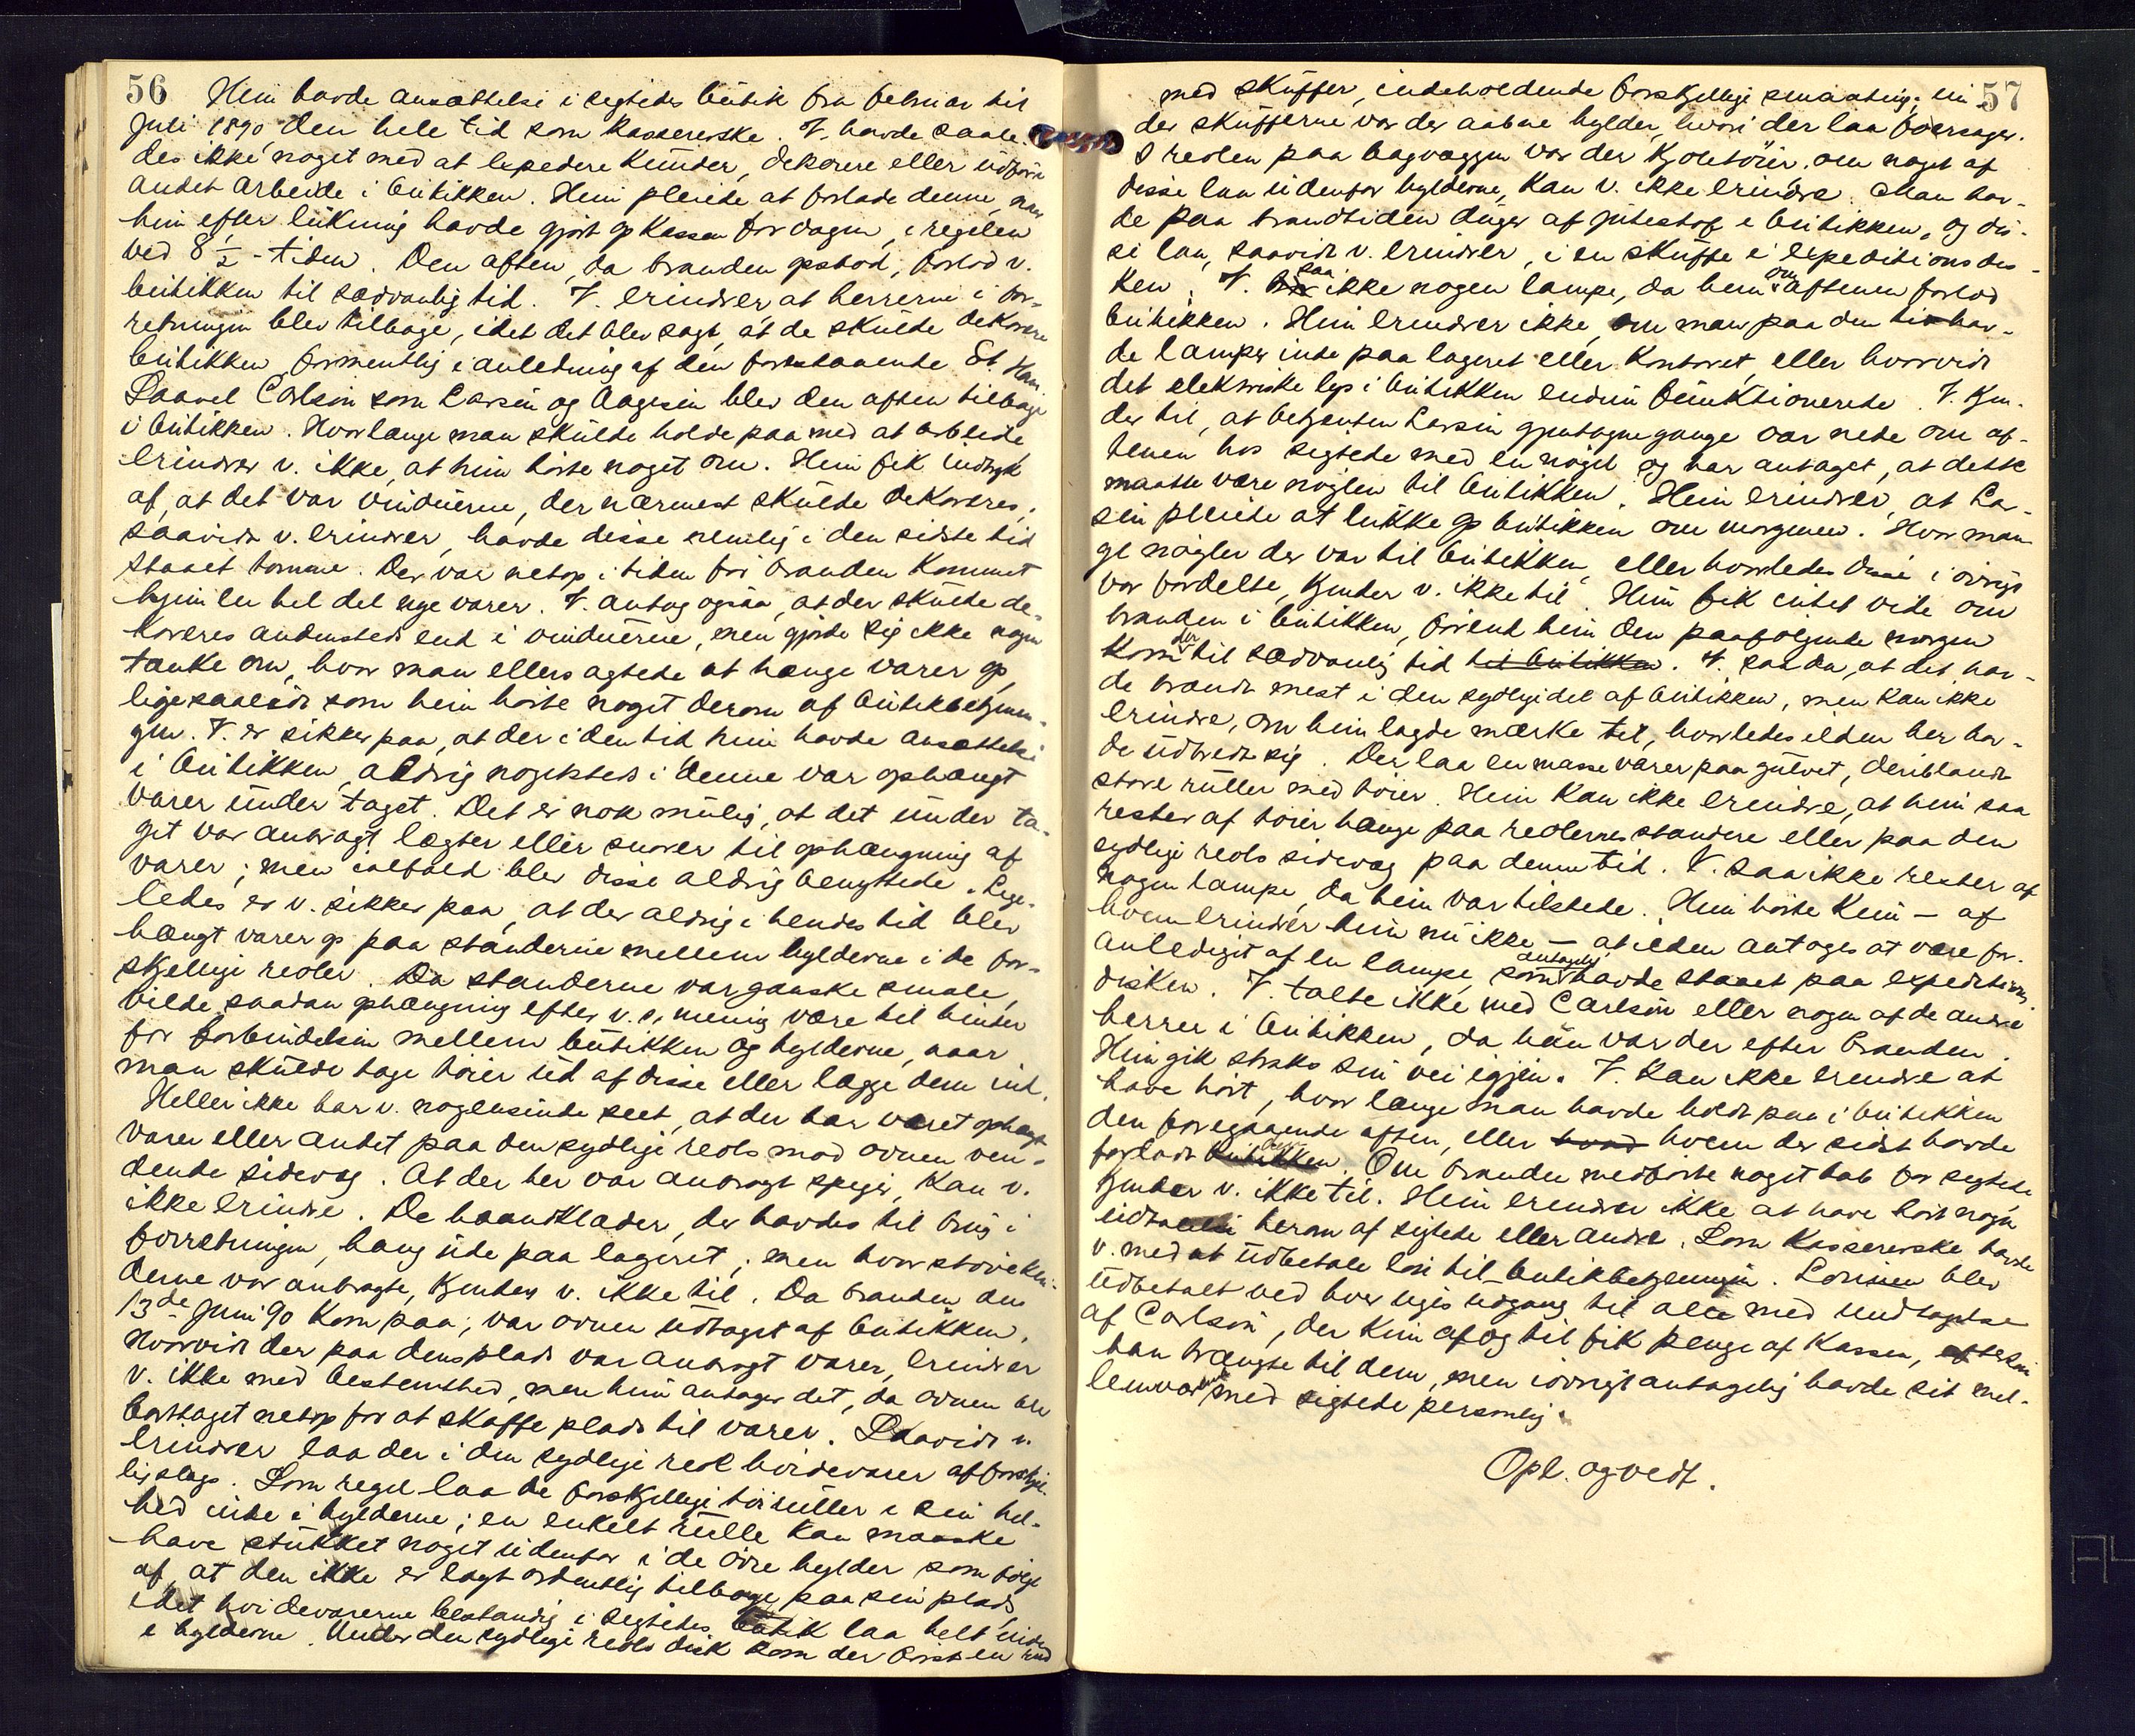 56
Hun havde ansættelse i sigtedes butik fra februar til
Juli 1890, den hele tid som kassererske. V. havde saale-
des ikke noget med at expedere kunder, dekorere eller udføre
andet arbeide i butikken. Hun pleiede at forlade denne, naar
hun efter lukning havde gjort op kassen for dagen, i regelen
ved 8 1/2-tiden. Den aften, da branden opstod, forlod v.
butikken til sædvanlig tid. V. erindrer, at herrerne i for-
retningen blev tilbage, idet det blev sagt, at de skulde dekorere
butikken, formentlig i anledning af den forestaaende St. Hans.
Saavel Carlson som Larsen og Aagesen blev den aften tilbage
i butikken. Hvorlænge man skulde holde paa med at arbeide
erindrer v. ikke, at hun hørte noget om. Hun fik indtryk
af, at det var vinduerne, der nærmest skulde dekoreres;
saavidt v. erindrer, havde disse nemlig i den sidste tid
staaet tomme. Der var netop i tiden før branden kommet
hjem en hel del nye varer. V. antog ogsaa, at der skulde de-
koreres andensteds end i vinduerne, men gjorde sig ikke nogen
tanke om, hvor man ellers agtede at hænge varer op,
ligesaalidt som hun hørte noget derom af butikbetjenin-
gen. V. er sikker paa, at der i den tid hun havde ansættelse
i butikken, aldrig nogetsteds i denne var ophængt
varer under taget. Det er nok mulig, at det under ta-
get var anbragt lægter eller snorer til ophængning af
varer; men ialfald blev disse aldrig benyttede. Lige-
ledes er v. sikker paa, at der aldrig i hendes tid blev
hængt varer op paa standerne mellem hylderne i de for-
skjellige reoler. Da standerne var ganske smale,
vilde saadan ophængning efter v.s mening være til hinder
for forbindelsen mellem butikken og hylderne, naar
man skulde tage tøier ud af disse eller lægge dem ind.
Heller ikke har v. nogensinde seet, at der har været ophængt
varer eller andet paa den sydlige reols mod ovnen ven-
dende sidevæg. At der her var anbragt speger, kan v.
ikke erindre. De haandklæder, der havdes til brug i
forretningen, hang ude paa lageret; men hvor støveklu-
derne var anbragte, kjender v. ikke til. Da branden den
13de Juni 90 kom paa, var ovnen udtaget af butikken.
Hvorvidt der paa dens plads var anbragt varer, erindrer
v. ikke med bestemthed, men hun antager det, da ovnen blev
borttaget netop for at skaffe plads til varer. Saavidt v.
erindrer laa der i den sydlige reol hvidevarer af forskjel-
lig slags. Som regel laa de forskjellige tøiruller i sin hel-
hed inde i hylderne; en enkelt rulle kan maaske
have stukket noget udenfor i de øvre hylder som følge
af, at den ikke er lagt ordentlig tilbage paa sin plads,
idet hvidevarerne bestandig i sigtedes butik laa helt inde
i hylderne. Under den sydlige reols disk kom der først en rad
57
med skuffer, indeholdende forskjellige smaating; un-
der skufferne var der aabne hylder, hvori der laa foersager.
I reolen paa bagvæggen var der kjoletøier. Om noget af
disse laa udenfor hylderne, kan v. ikke erindre. Man hav-
de paa brandtiden duger af jutestof i butikken, og dis-
se laa, saavidt v. erindrer, i en skuffe i expeditionsdis-
ken. V. saa ikke nogen lampe, da hun om aftenen forlod
butikken. Hun erindrer ikke, om man paa den tid hav-
de lamper inde paa lageret eller kontoret, eller hvorvidt
det elektriske lys i butikken endnu funktionerede. V. kjen-
der til, at betjenten Larsen gjentagne gange var nede om af-
tenen hos sigtede med en nøgel og har antaget, at dette
maatte være nøglen til butikken. Hun erindrer, at La-
sen pleiede at lukke op butikken om morgenen. Hvor man-
ge nøgler der var til butikken, eller hvorledes disse i øvrigt
var fordelte, kjender v. ikke til. Hun fik intet vide om
branden i butikken, førend hun den paafølgende morgen
kom der til sædvanlig tid til butikken. V. saa da, at det hav-
de brændt mest i den sydlige del af butikken, men kan ikke
erindre, om hun lagde mærke til, hvorledes ilden her hav-
de udbredt sig. Der laa en masse varer paa gulvet, deriblandt
store ruller med tøier. Hun kan ikke erindre, at hun saa
rester af tøier hænge paa reolernes standere eller paa den
sydlige reols sidevæg paa denne tid. V. saa ikke rester af
nogen lampe, da hun var tilstede. Hun hørte kun – af
hvem erindrer hun nu ikke – at ilden antages at være for-
anlediget af en lampe, som antagelig havde staaet paa expeditions-
disken. V. talte ikke med Carlson eller nogen af de andre
herrer i butikken, da hun var der efter branden.
Hun gik straks sin vei igjen. V. kan ikke erindre at
have hørt, hvor længe man havde holdt paa i butikken
den foregaaende aften, eller hvad hvem der sidst havde
forladt butikken. Om branden medførte noget tab for sigtede,
kjender v. ikke til. Hun erindrer ikke at have hørt nogen
udtalelse herom af sigtede eller andre. Som kassererske havde
v. med at udbetale løn til butikbetjeningen. Lønnen blev
udbetalt ved hver uges udgang til alle med undtagelse
af Carlson, der kun af og til fik penge af kassen, eftersom
han trængte til dem, men iøvrigt antagelig havde sit mel-
lemværende med sigtede personlig.
Opl. og vedt.